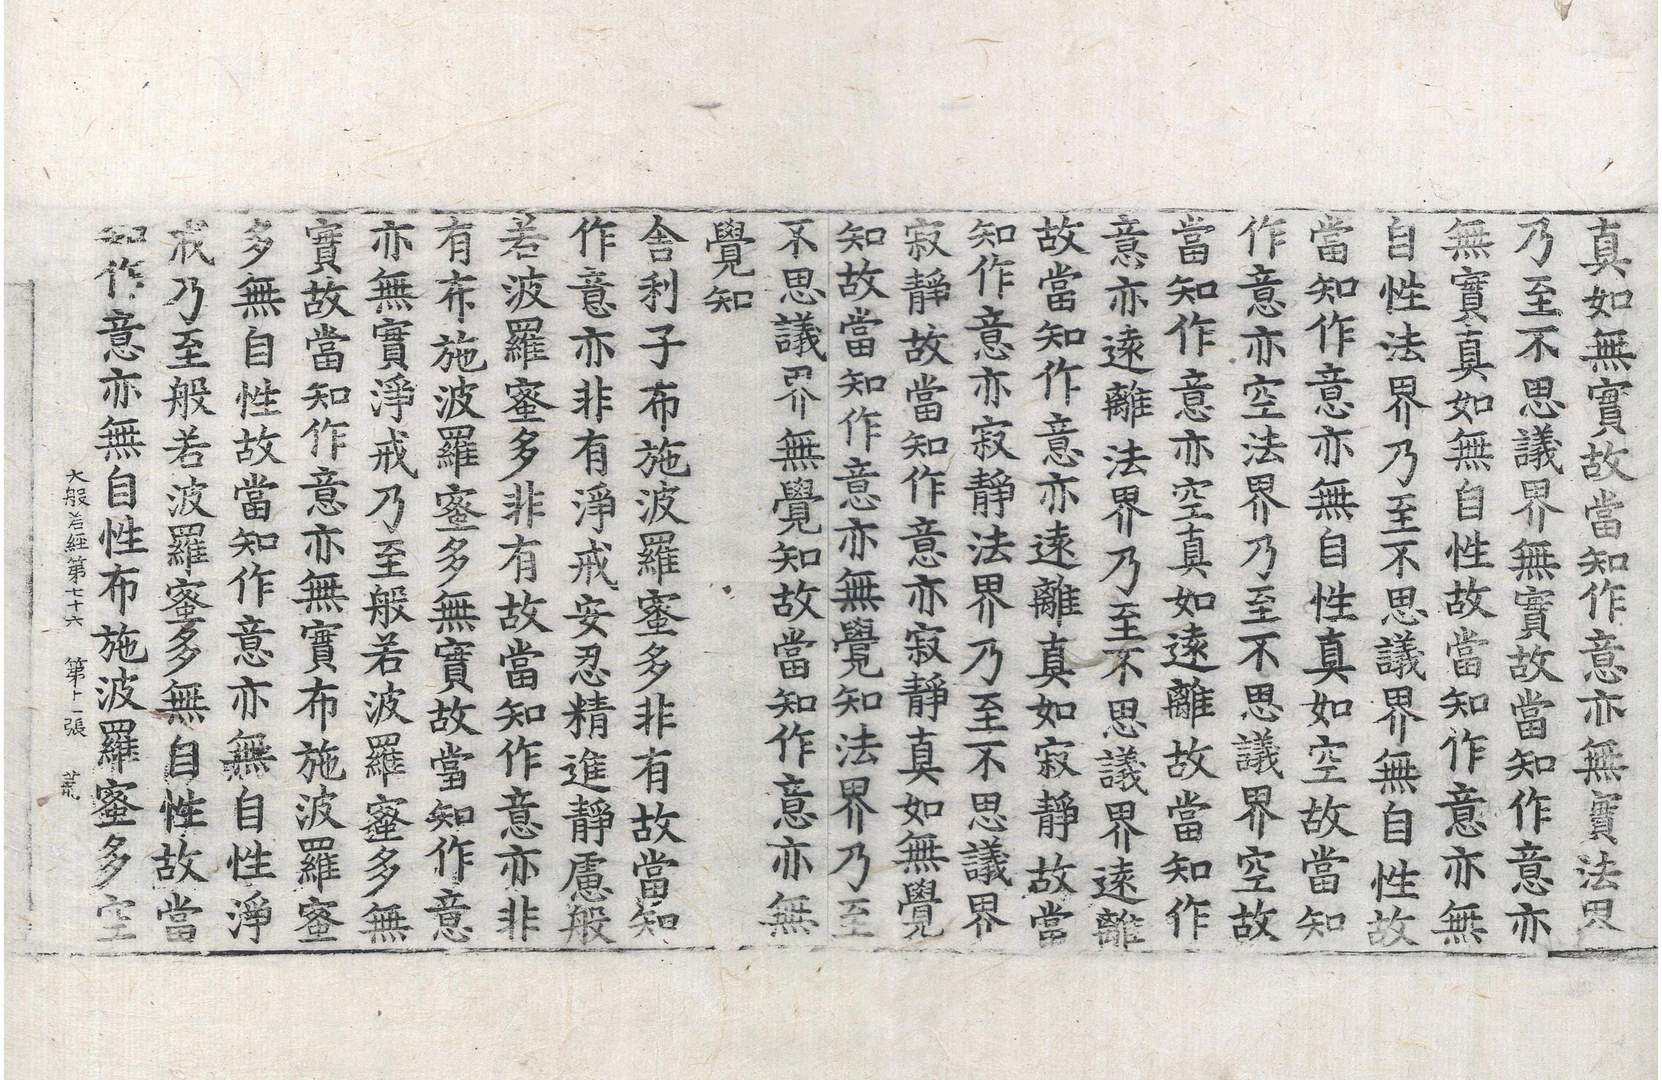 真如無實故當知作意亦無實法界
乃至不思議界無實故當知作意亦
無實真如無自性故當知作意亦無
自性法界乃至不思議界無自性故
當知作意亦無自性真如空故當知
作意亦空法界乃至不思議界空故
當知作意亦空真如遠離故當知作
意亦遠離法界乃至不思議界遠離
故當知作意亦遠離真如寂靜故當
知作意亦寂靜法界乃至不思議界
寂靜故當知作意亦寂靜真如無覺
知故當知作意亦無覺知法界乃至
不思議界無覺知故當知作意亦無
覺知
舍利子布施波羅蜜多非有故當知
作意亦非有淨戒安忍精進靜慮般
若波羅蜜多非有故當知作意亦非
有布施波羅蜜多無實故當知作意
亦無實淨戒乃至般若波羅蜜多無
實故當知作意亦無實布施波羅蜜
多無自性故當知作意亦無自性淨
戒乃至般若波羅蜜多無自性故當
知作意亦無自性布施波羅蜜多空
大般若經第七十六 第十一張